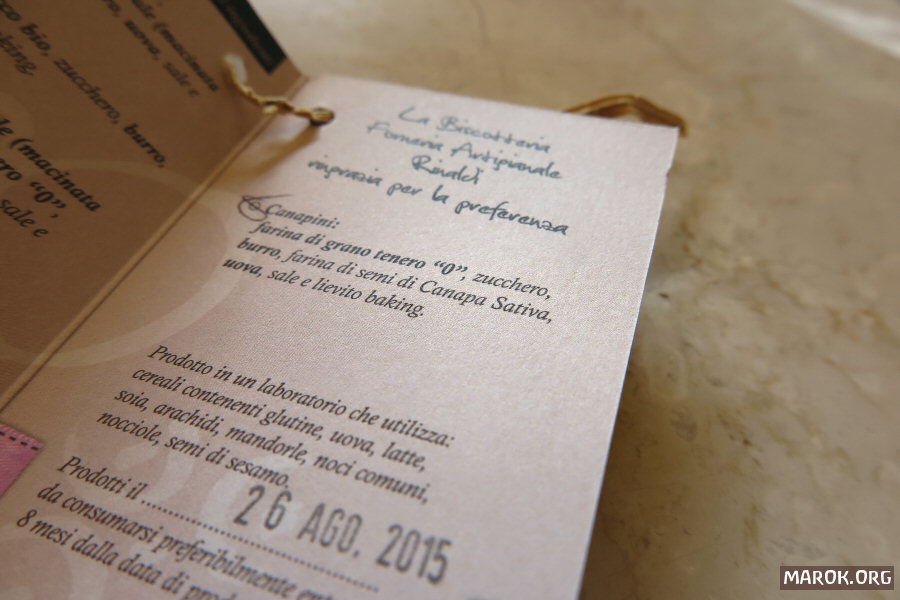 co bio, zucchero, burro,
king.
le (macinata
uova, sale e
le (macinata
rro "0",
sale e
La Biscotteria
Forneria Artigianale
Rinaldi
ringrazia per la preferenza
Canapini:
farina di grano tenero "0", zucchero,
burro, farina di semi di Canapa Sativa,
uova, sale e lievito baking.
Prodotto in un laboratorio che utilizza:
cereali contenenti glutine, uova, latte,
soia, arachidi, mandorle, noci comuni,
nocciole, semi di sesamo.
Prodotti il.......... 26 AGO. 2015
da consumarsi preferibilmente
8 mesi dalla data di
MAROK.ORG